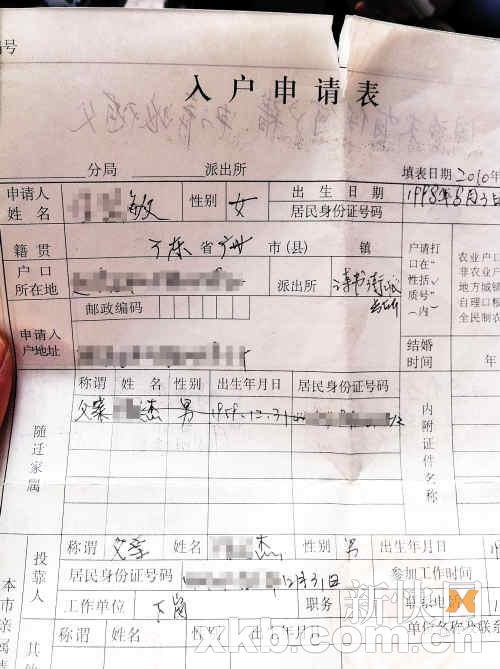 编号
入户申请表
分局 派出所 填表日期2010年
申请人姓名 敏 性别 女 出生日期 1998年8月3日
居民身份证号码
籍贯 广东省广州市(县) 镇
户口所在地 派出所
户口性质 请在括号内打“√” 农业户口
非农业户
地方城镇
自理口粮
全民制农
邮政编码
申请人入户地址 结婚时间 年
随迁家属 称谓 姓名 性别 出生年月日 居民身份证号码 内附证件名称
父亲 杰 男 1959.12.31
投靠人 称谓 父亲 姓名 杰 性别 男 出生年月日
居民身份证号码 12月31日 参加工作时间
工作单位 下岗 职务 联系电话
本市亲属 其他 称谓 姓名 性别 出生年月日 单位名称及联系
新快网
xkb.com.cn